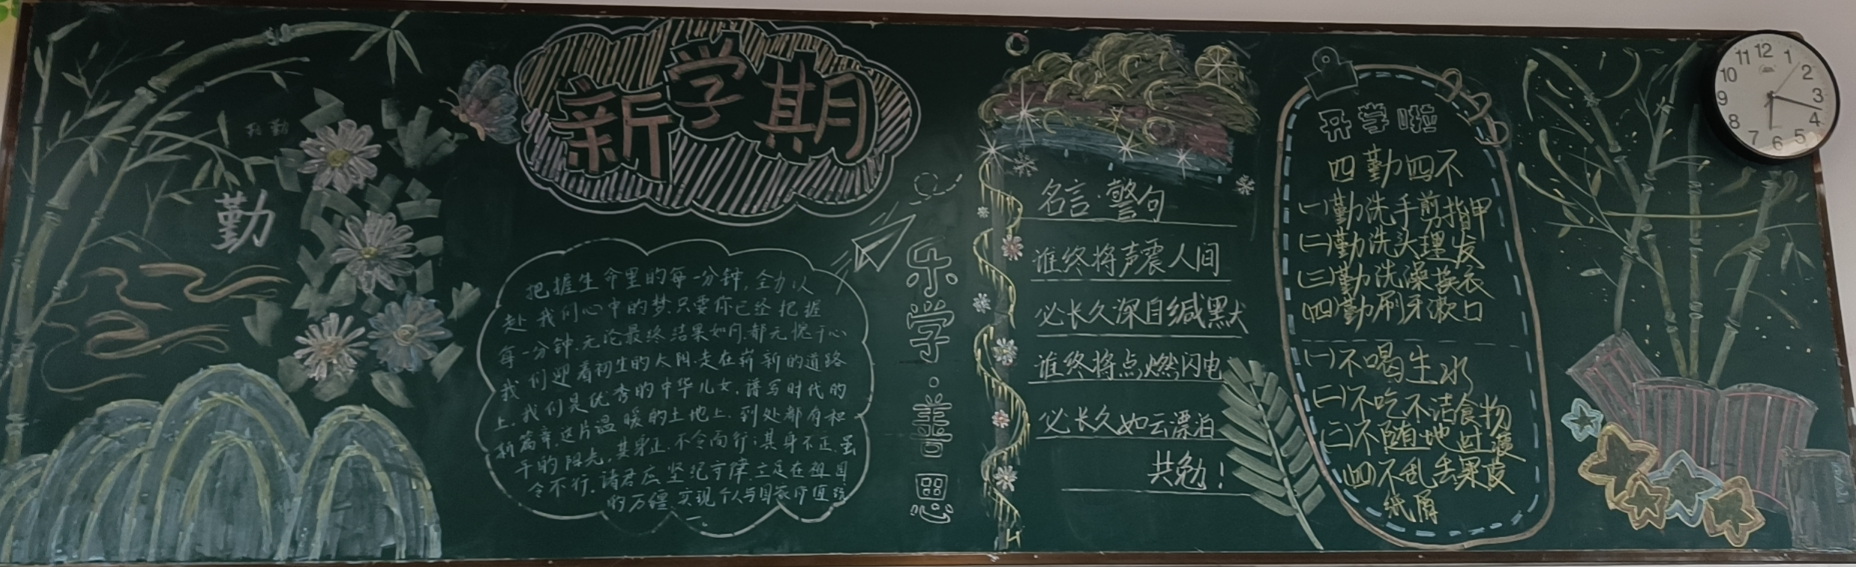 勤
新学期
把握生命里的每一分钟,全力以
赴 我们心中的梦.只要你已经把握
每一分钟,无论最终结果如何,都无愧于心
我们迎着初生的太阳,走在崭新的道路
上.我们是优秀的中华儿女.谱写时代的
新篇章.这片温暖的土地上.到处都有和
平的阳光,其身正,不令而行;其身不正.虽
令不行.诸君应坚纪守律,立足在祖国
的万疆,实现个人与国家价值
乐学·善思
名言·警句
谁终将声震人间
必长久深自缄默
谁终将点燃闪电
必长久如云漂泊
共勉!
开学啦
四勤四不
(一)勤洗手剪指甲
(二)勤洗头理发
(三)勤洗澡换衣
(四)勤刷牙漱口
(一)不喝生水
(二)不吃不洁食物
(三)不随地吐痰
(四)不乱丢果皮
纸屑
11 12 1
10 2
9 3
8 4
7 6 5